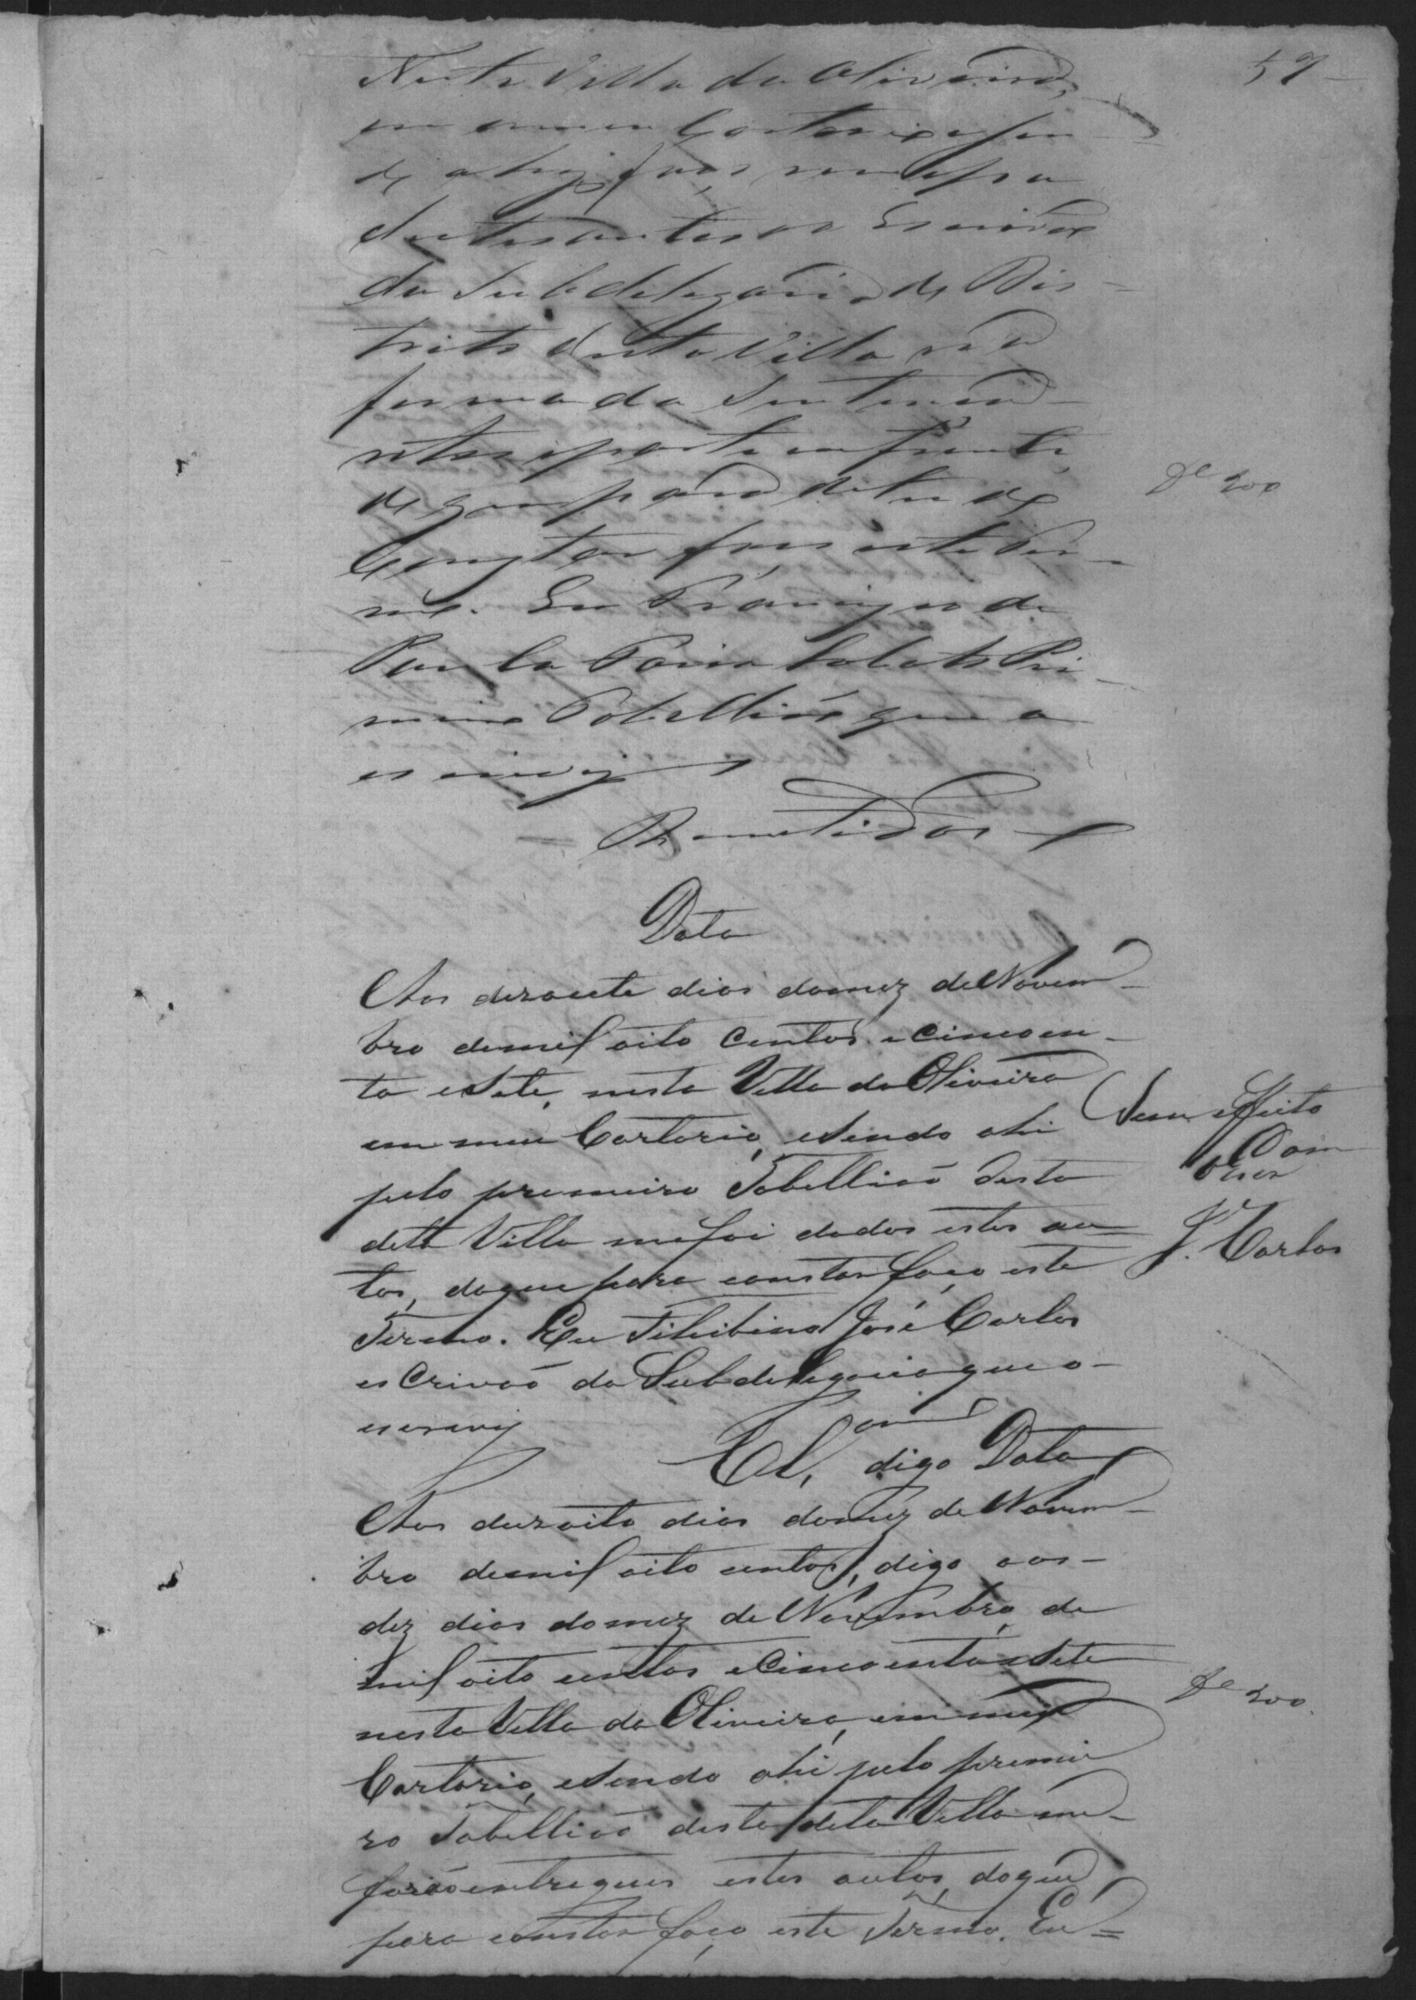 57
Nesta Villa da Oliveira,
em o meu Cartorio e sen
do ahi faço remessa
destes autos ao Escrivão
da Subdelegacia do Dis-
tricto desta Villa na
forma da Sentença
retro e parte em frente,
de que para de tudo
Constar faço este Ter-
mo. Eu Francisco de
Paula Primei-
ro Tabellião que o
escrevy
Remetidos
Data
Aos dezasete dias do mez de Novem-
bro de mil oito centos e cincoen-
ta e Sete, nesta Villa da Oliveira
em meu Cartorio, e sendo ahi
pelo premeiro Tabelliaõ desta
deta Villa me foi dados estes au-
tos, do que para constar faço este
Termo. Eu José Carlos
esCrivaõ da Subdelegacia que o
escrevy
Sem effeito
J. Carlos
Cl, digo Data
Aos dezoito dias do mez de Novem-
bro de mil oito centos, digo aos
dez dias do mez de Novembro de
mil oito centos e Cincoenta e Sete
nesta Villa da Oliveira, em meu
Cartorio, e sendo ahi pelo premei
ro Tabelliaõ desta deta Villa me
foraõ entregues estes autos, do que
para constar faço este Termo. Eu